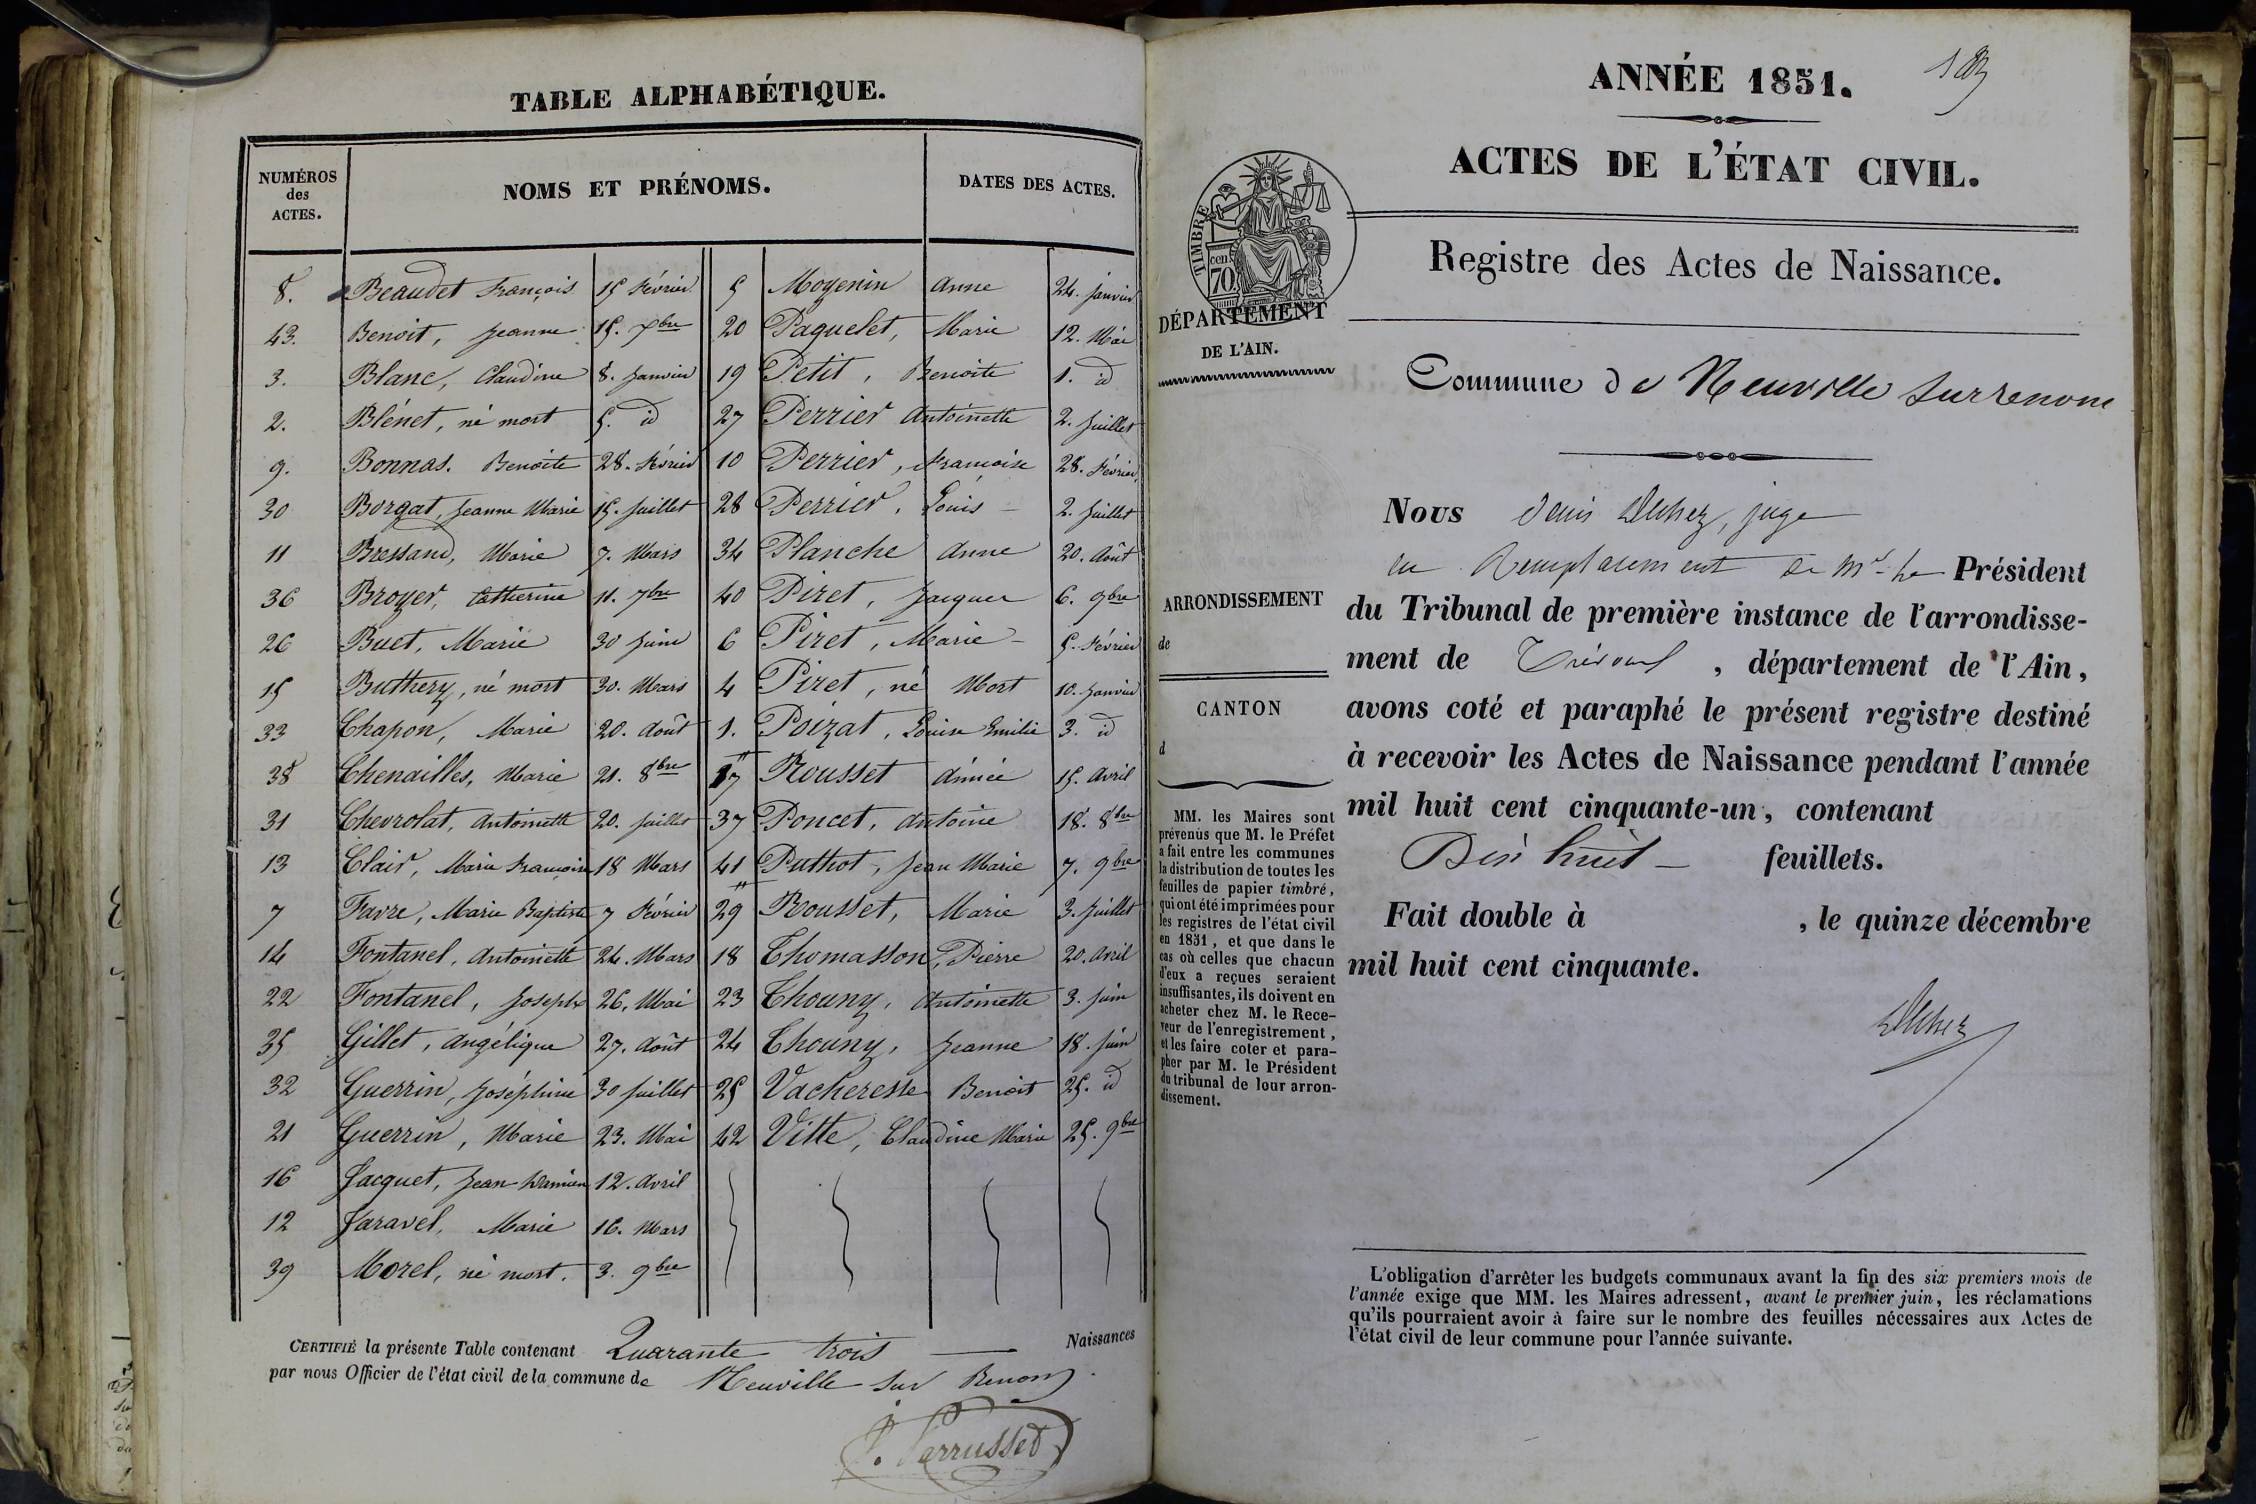 TABLE ALPHABÉTIQUE.
NUMÉROS des ACTES.
NOMS ET PRÉNOMS.
DATES DES ACTES.
8. Beaudet François 15 Février
43. Benoit, Jeanne 15. xbre
3. Blanc, Claudine 8. Janvier
2. Blénet, né mort 5. id
9. Bonnas. Benoite 28. Février
30 Borgat, Jeanne Marie 15. Juillet
11 Bressand, Marie 7. Mars
36 Broyer, Catherine 11. 7bre
26 Buet, Marie 30 Juin
15 Buthery, né mort 30. Mars
33 Chapon, Marie 20. Août
38 Chenailles, Marie 21. 8bre
31 Chevrolat, Antoinette 20. Juillet
13 Clair, Marie Françoise 18 Mars
7 Favre, Marie Baptiste 7 Février
14 Fontanel, Antoinette 24. Mars
22 Fontanel, Joseph 26. Mai
35 Gillet, Angélique 27. Août
32 Guerrin, Joséphine 30 Juillet
21 Guerrin, Marie 23. Mai
16 Jacquet, Jean Damien 12. Avril
12 Jaravel, Marie 16. Mars
39 Morel, né mort. 3. 9bre
5 Moyenin Anne 24. Janvier
20 Paquelet, Marie 12. Mai
19 Petit, Benoite 1. id
27 Perrier Antoinette 2. Juillet
10 Perrier, Francoise 28. Février
28 Perrier, Louis 2. Juillet
34 Planche Anne 20. Août
40 Piret, Jacques 6. 9bre
6 Piret, Marie 5. Février
4 Piret, né Mort 10. Janvier
1. Poizat, Louise Emilie 3. id
17 Rousset Aimée 15. Avril
37 Poncet, Antoine 18. 8bre
41 Puthot, Jean Marie 7. 9bre
29 Rousset, Marie 3. Juillet
18 Thomasson, Pierre 20. Avril
23 Thouny, Antoinette 3. Juin
24 Thouny, Jeanne 18. Juin
25 Vacheresse Benoit 25. id
42 Vitte, Claudine Marie 25. 9bre
CERTIFIÉ la présente Table contenant Quarante trois Naissances
par nous Officier de l'état civil de la commune de Neuville sur Renon
ANNÉE 1851.
ACTES DE L'ÉTAT CIVIL.
TIMBRE
cen.
70.
Registre des Actes de Naissance.
DÉPARTEMENT
DE L'AIN.
Commune de Neuville sur renom
ARRONDISSEMENT
de
CANTON
d
MM. les Maires sont
prévenus que M. le Préfet
a fait entre les communes
la distribution de toutes les
feuilles de papier timbré,
qui ont été imprimées pour
les registres de l'état civil
en 1851, et que dans le
cas où celles que chacun
d'eux a reçues seraient
insuffisantes, ils doivent en
acheter chez M. le Rece-
veur de l'enregistrement,
et les faire coter et para-
pher par M. le Président
du tribunal de leur arron-
dissement.
Nous Denis juge
en Remplacement de Mr le Président
du Tribunal de première instance de l'arrondisse-
ment de Trévoux, département de l'Ain,
avons coté et paraphé le présent registre destiné
à recevoir les Actes de Naissance pendant l'année
mil huit cent cinquante-un, contenant
Dix huit feuillets.
Fait double à , le quinze décembre
mil huit cent cinquante.
L'obligation d'arrêter les budgets communaux avant la fin des six premiers mois de
l'année exige que MM. les Maires adressent, avant le premier juin, les réclamations
qu'ils pourraient avoir à faire sur le nombre des feuilles nécessaires aux Actes de
l'état civil de leur commune pour l'année suivante.